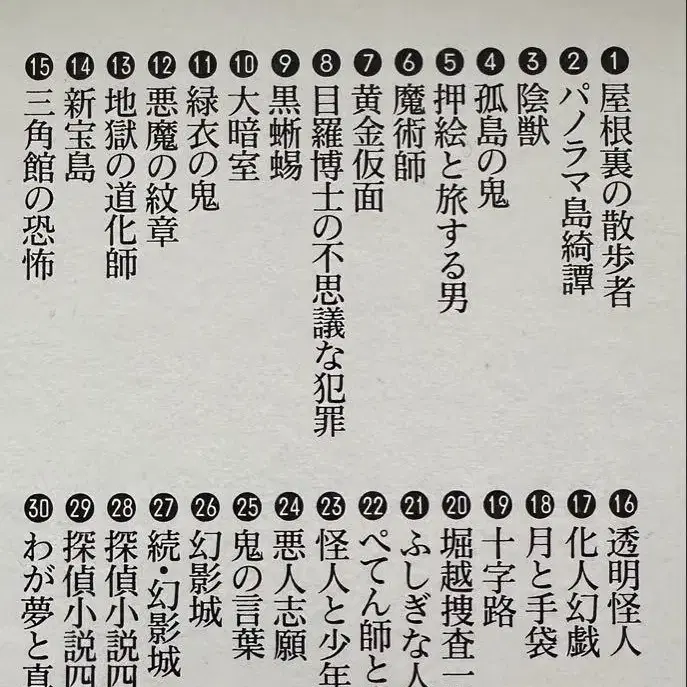 ❶屋根裏の散歩者
❷パノラマ島綺譚
❸陰獣
❹孤島の鬼
❺押絵と旅する男
❻魔術師
❼黄金仮面
❽目羅博士の不思議な犯罪
❾黒蜥蜴
❿大暗室
⓫緑衣の鬼
⓬悪魔の紋章
⓭地獄の道化師
⓮新宝島
⓯三角館の恐怖
⓰透明怪人
⓱化人幻戯
⓲月と手袋
⓳十字路
⓴堀越捜査一
㉑ふしぎな人
㉒ぺてん師と
㉓怪人と少年
㉔悪人志願
㉕鬼の言葉
㉖幻影城
㉗続・幻影城
㉘探偵小説四
㉙探偵小説四
㉚わが夢と真